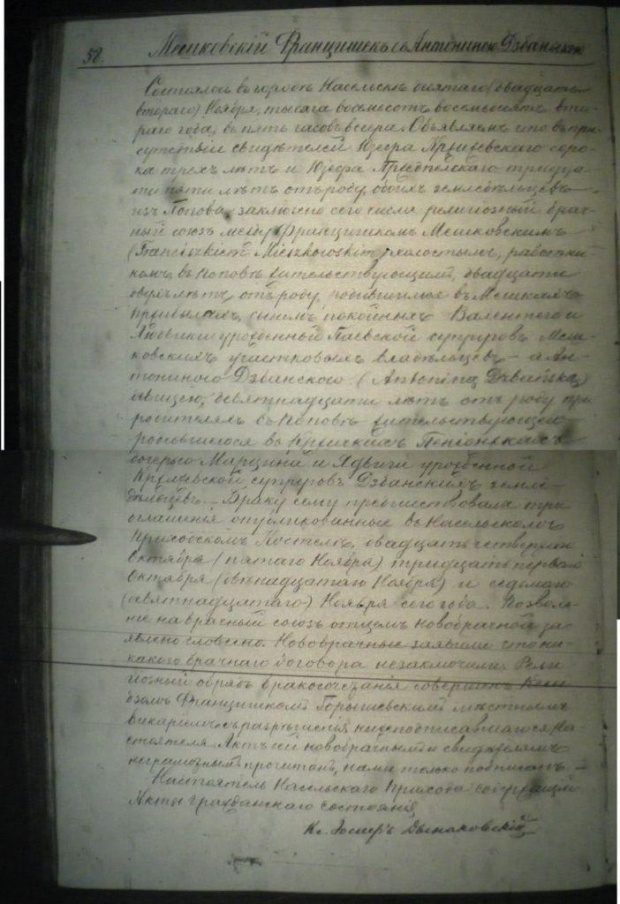 58. Мешковскій Францишекъ съ Антониною Дзбанскою
Состоялось въ городѣ Насельскѣ десятаго (двадцать
втораго) Ноября, тысяча восемьсотъ восемьдесятъ вто-
раго года, въ пять часовъ вечера. Объявляемъ что въ при-
сутствіи свидѣтелей Юзефа соро-
ка трехъ лѣтъ и Юзефа тридца-
ти пяти лѣтъ отъ роду, обоихъ земледѣльцевъ
изъ Попова, заключено сего числа религіозный брач-
ный союзъ между Францишкомъ Мешковскимъ
(Franciszkiem Mieszkowskim) холостымъ, работни-
комъ въ Поповѣ жительствующимъ, двадцати
лѣтъ отъ роду, родившимся въ
сыномъ покойныхъ Валентого и
урожденный супруговъ Меш-
ковскихъ участковыхъ владѣльцевъ – а Ан-
тониною Дзбанскою (Antonina Dzbańska)
дѣвицею, девятнадцати лѣтъ отъ роду при
родителяхъ въ Поповѣ жительствующею
родившеюся въ
дочерью Марцина и Ядвиги урожденной
супруговъ Дзбанскихъ земле-
дѣльцевъ. – Браку сему предшествовали три
оглашенія опубликованные въ Насельскомъ
Приходскомъ Костелѣ, двадцать четвертаго
Октября (пятаго Ноября) тридцать перваго
Октября (двѣнадцатаго Ноября) и седьмаго
(девятнадцатаго) Ноября сего года. Позволе-
ніе на брачный союзъ отцемъ новобрачной за-
явлено словесно. Новобрачные заявили что ни-
какого брачнаго договора незаключили. Рели-
гіозный обрядъ бракосочетанія совершенъ Ксен-
дзомъ Францишкомъ мѣстнымъ
викаріемъ съ разрѣшенія нижеподписавшагося На-
стоятеля. Актъ сей новобрачнымъ и свидѣтелямъ
неграмотнымъ прочитанъ, нами только подписанъ. –
Настоятель Насельскаго Прихода содержащій
Акты гражданскаго состоянія
Кс. Іосифъ